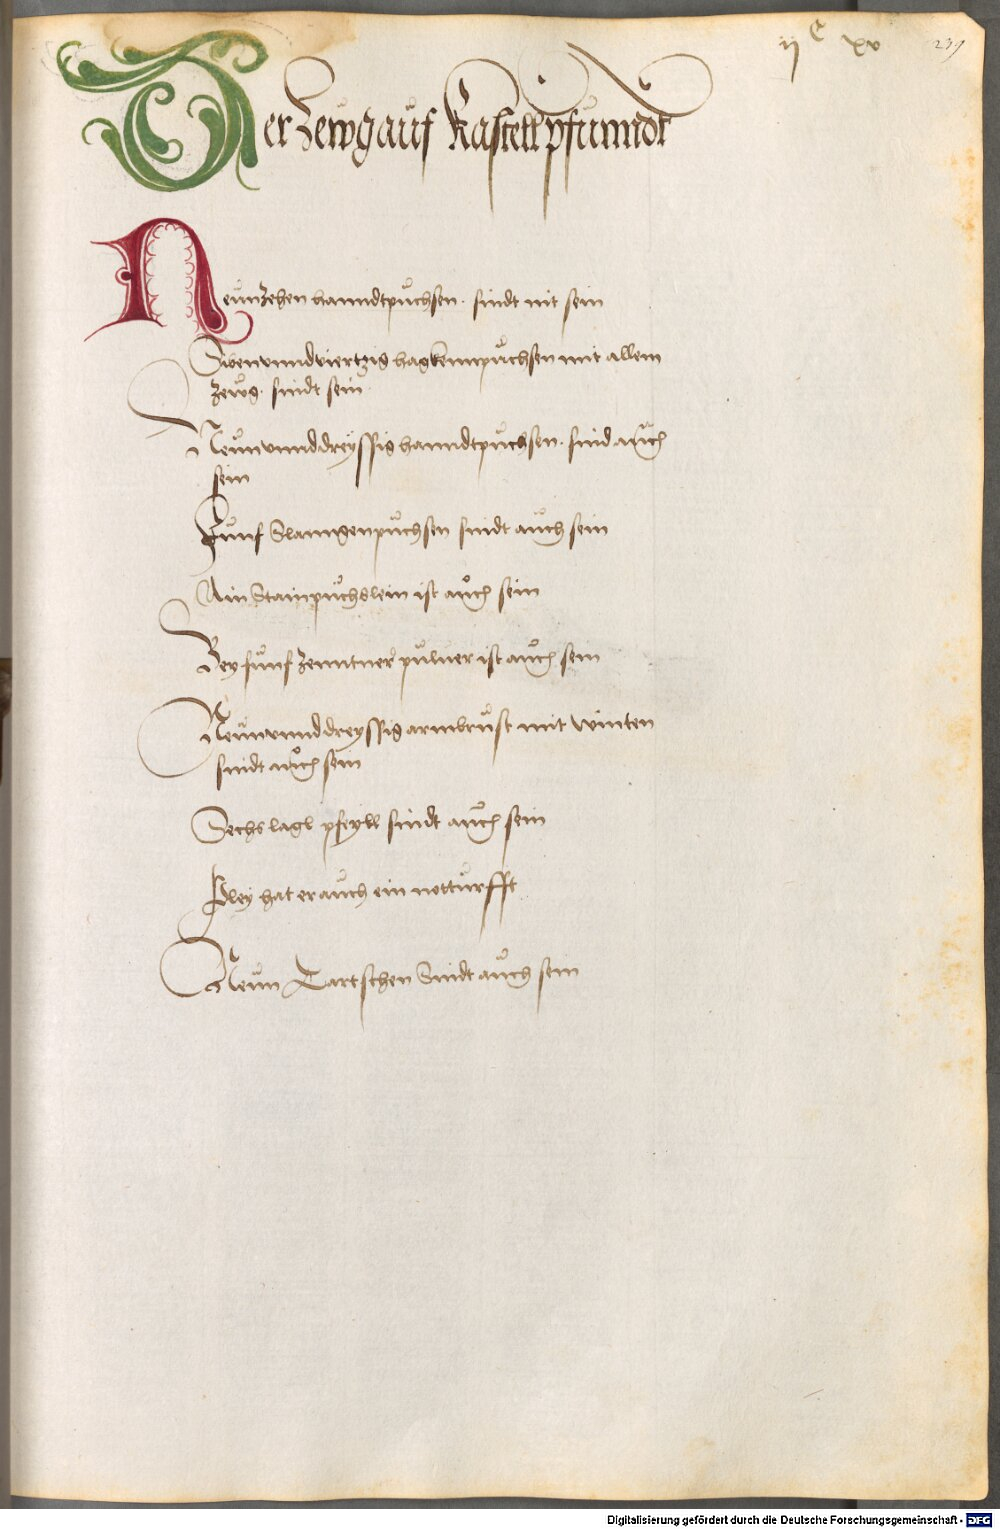 ijᶜ xv
239
Der Zewg auf Kastell pfunndt
Neunzehen hanndtpuchsen. sindt nit sein
Zwenunndviertzig hagkennpuchsen mit allem
Zewg. sindt sein
Neununnddreyssig hanndtpuchsen. sind auch
sein
Funf Slanngenpuchsen sindt auch sein
Ain Stainpuchslein ist auch sein
Bey funf Zenntner pulver ist auch sein
Neununnddreyssig armbrust mit winten
sindt auch sein
Sechs lagl pfeyll sindt auch sein
Pley hat er auch ein notturfft
Neun Tartschen Sindt auch sein
Digitalisierung gefördert durch die Deutsche Forschungsgemeinschaft - DFG